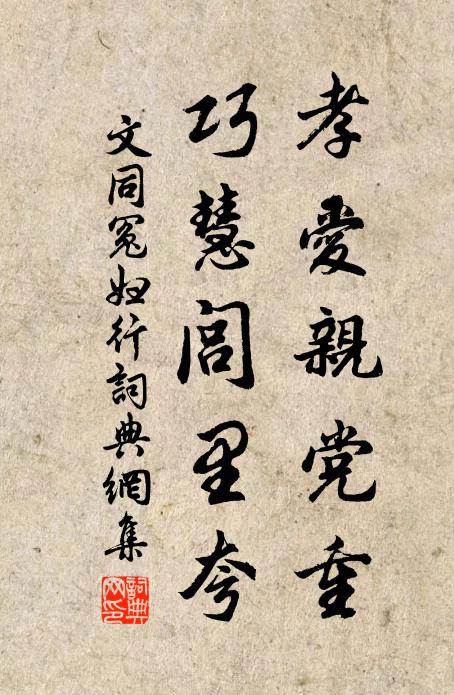 孝愛親党重
巧慧閭里夸
文同冤婦行詞典網集
詞典网印